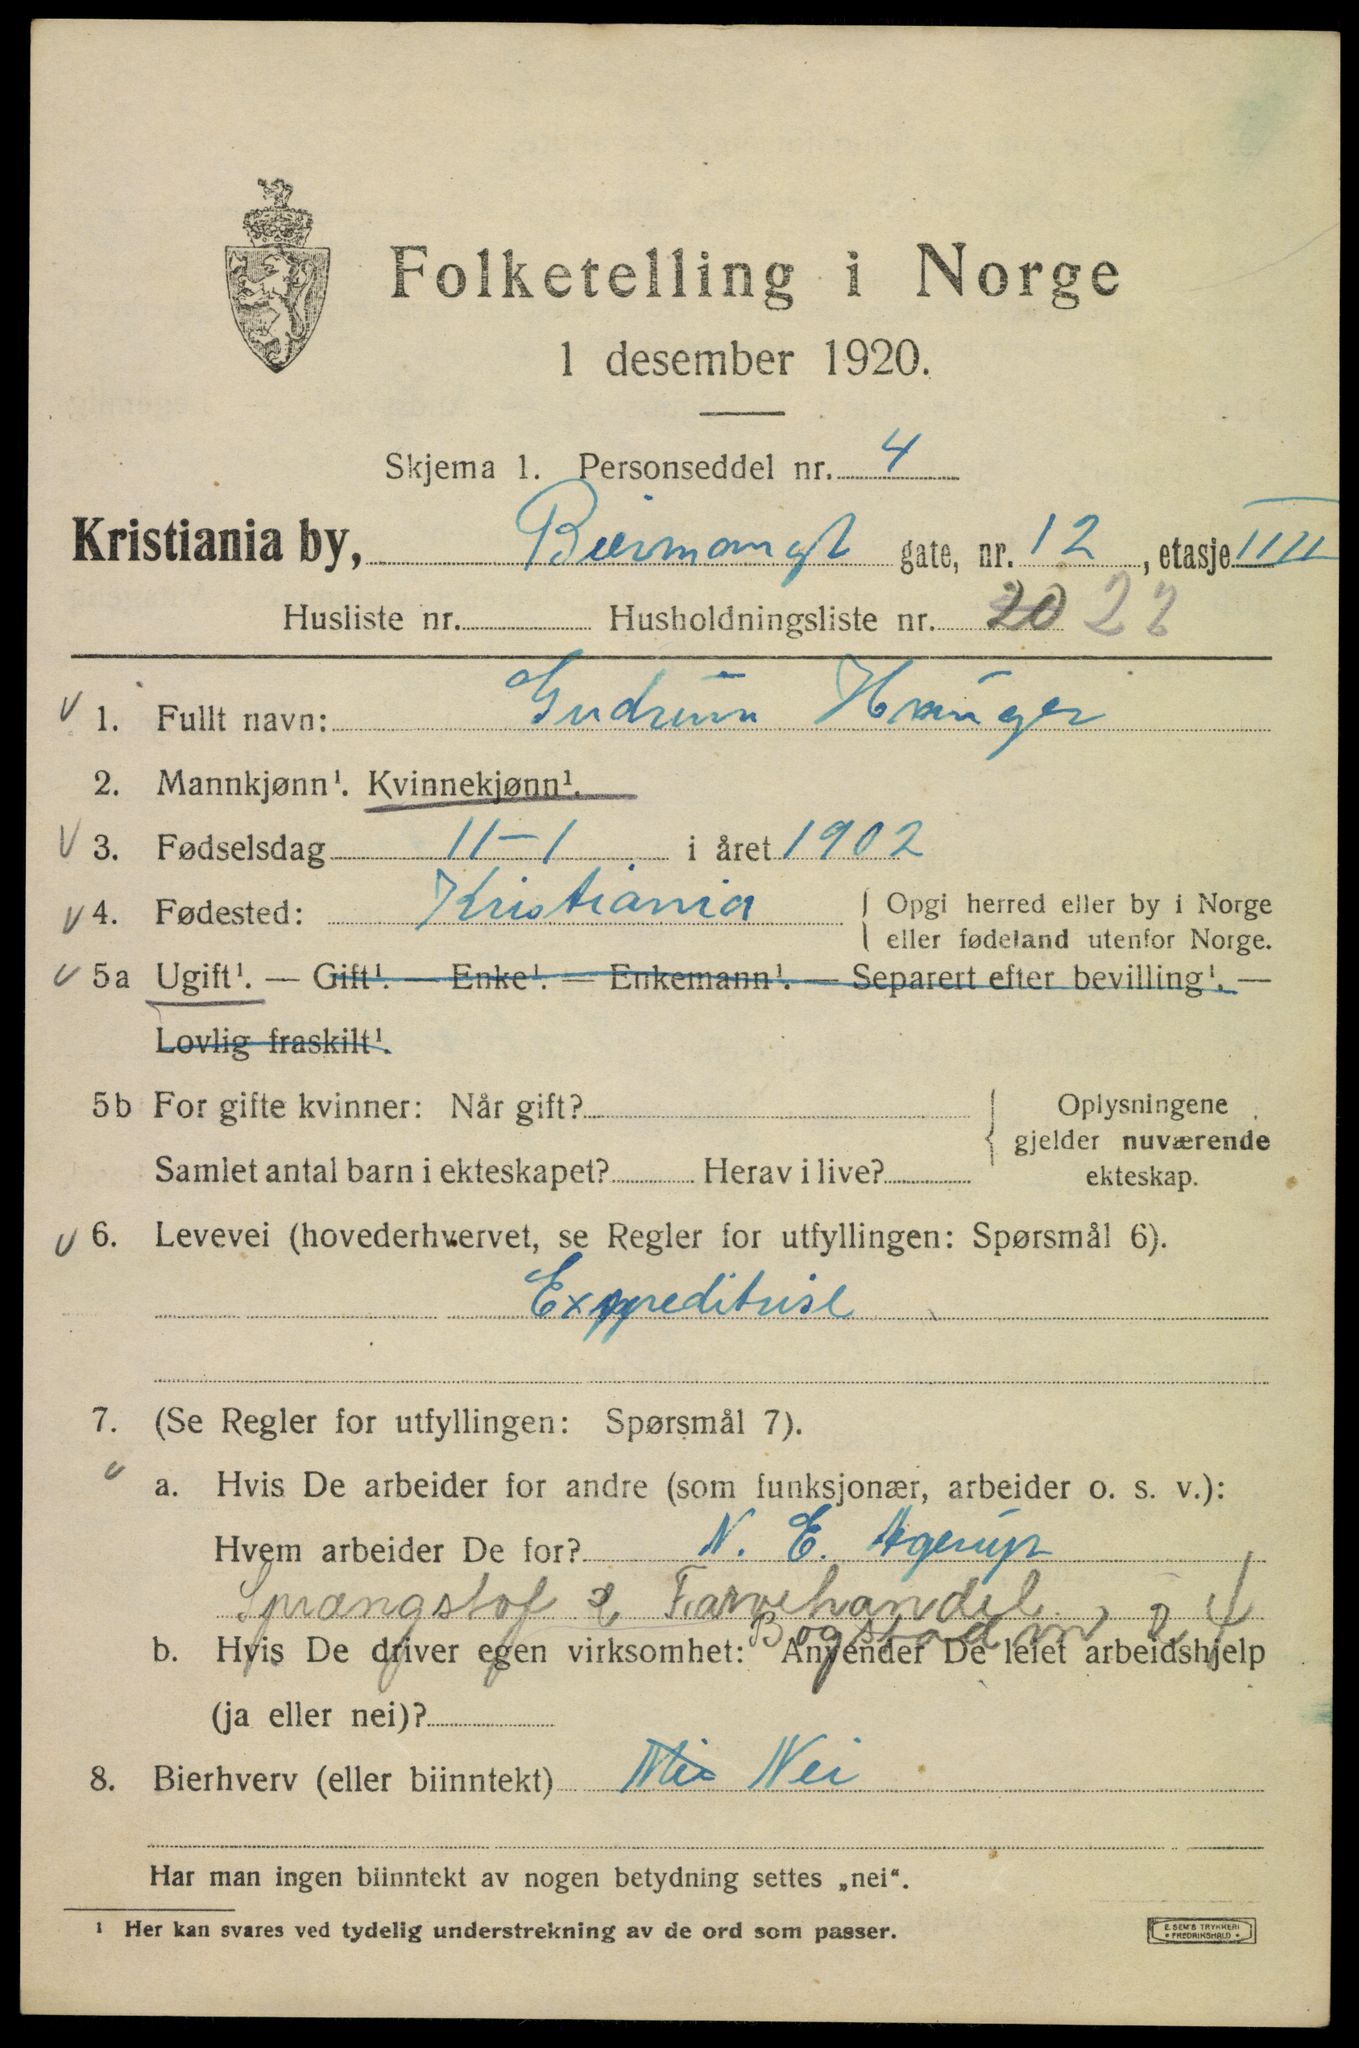 Folketelling i Norge
1 desember 1920.
Skjema 1. Personseddel nr. 4
Kristiania by, Biermangt gate, nr. 12, etasje IIII
Husliste nr. Husholdningsliste nr. 20 22
1. Fullt navn: Gudrun Haúger
2. Mannkjønn¹. Kvinnekjønn¹.
3. Fødselsdag 11-1 i året 1902
4. Fødested: Kristiania Opgi herred eller by i Norge
eller fødeland utenfor Norge.
5a Ugift¹. — Gift¹. — Enke¹. — Enkemann¹. — Separert efter bevilling¹. —
Lovlig fraskilt¹.
5b For gifte kvinner: Når gift? Oplysningene
gjelder nuværende
Samlet antal barn i ekteskapet? Herav i live? ekteskap.
6. Levevei (hovederhvervet, se Regler for utfyllingen: Spørsmål 6).
Expeditrise
7. (Se Regler for utfyllingen: Spørsmål 7).
a. Hvis De arbeider for andre (som funksjonær, arbeider o. s. v.):
Hvem arbeider De for? N. E. Agerup
Sprængstof & Farvehandel,
Bogstadvn 24
b. Hvis De driver egen virksomhet: Anvender De leiet arbeidshjelp
(ja eller nei)?
8. Bierhverv (eller biinntekt) Nei
Har man ingen biinntekt av nogen betydning settes „nei“.
¹ Her kan svares ved tydelig understrekning av de ord som passer.
E. SEM'S TRYKKERI
• FREDRIKSHALD •